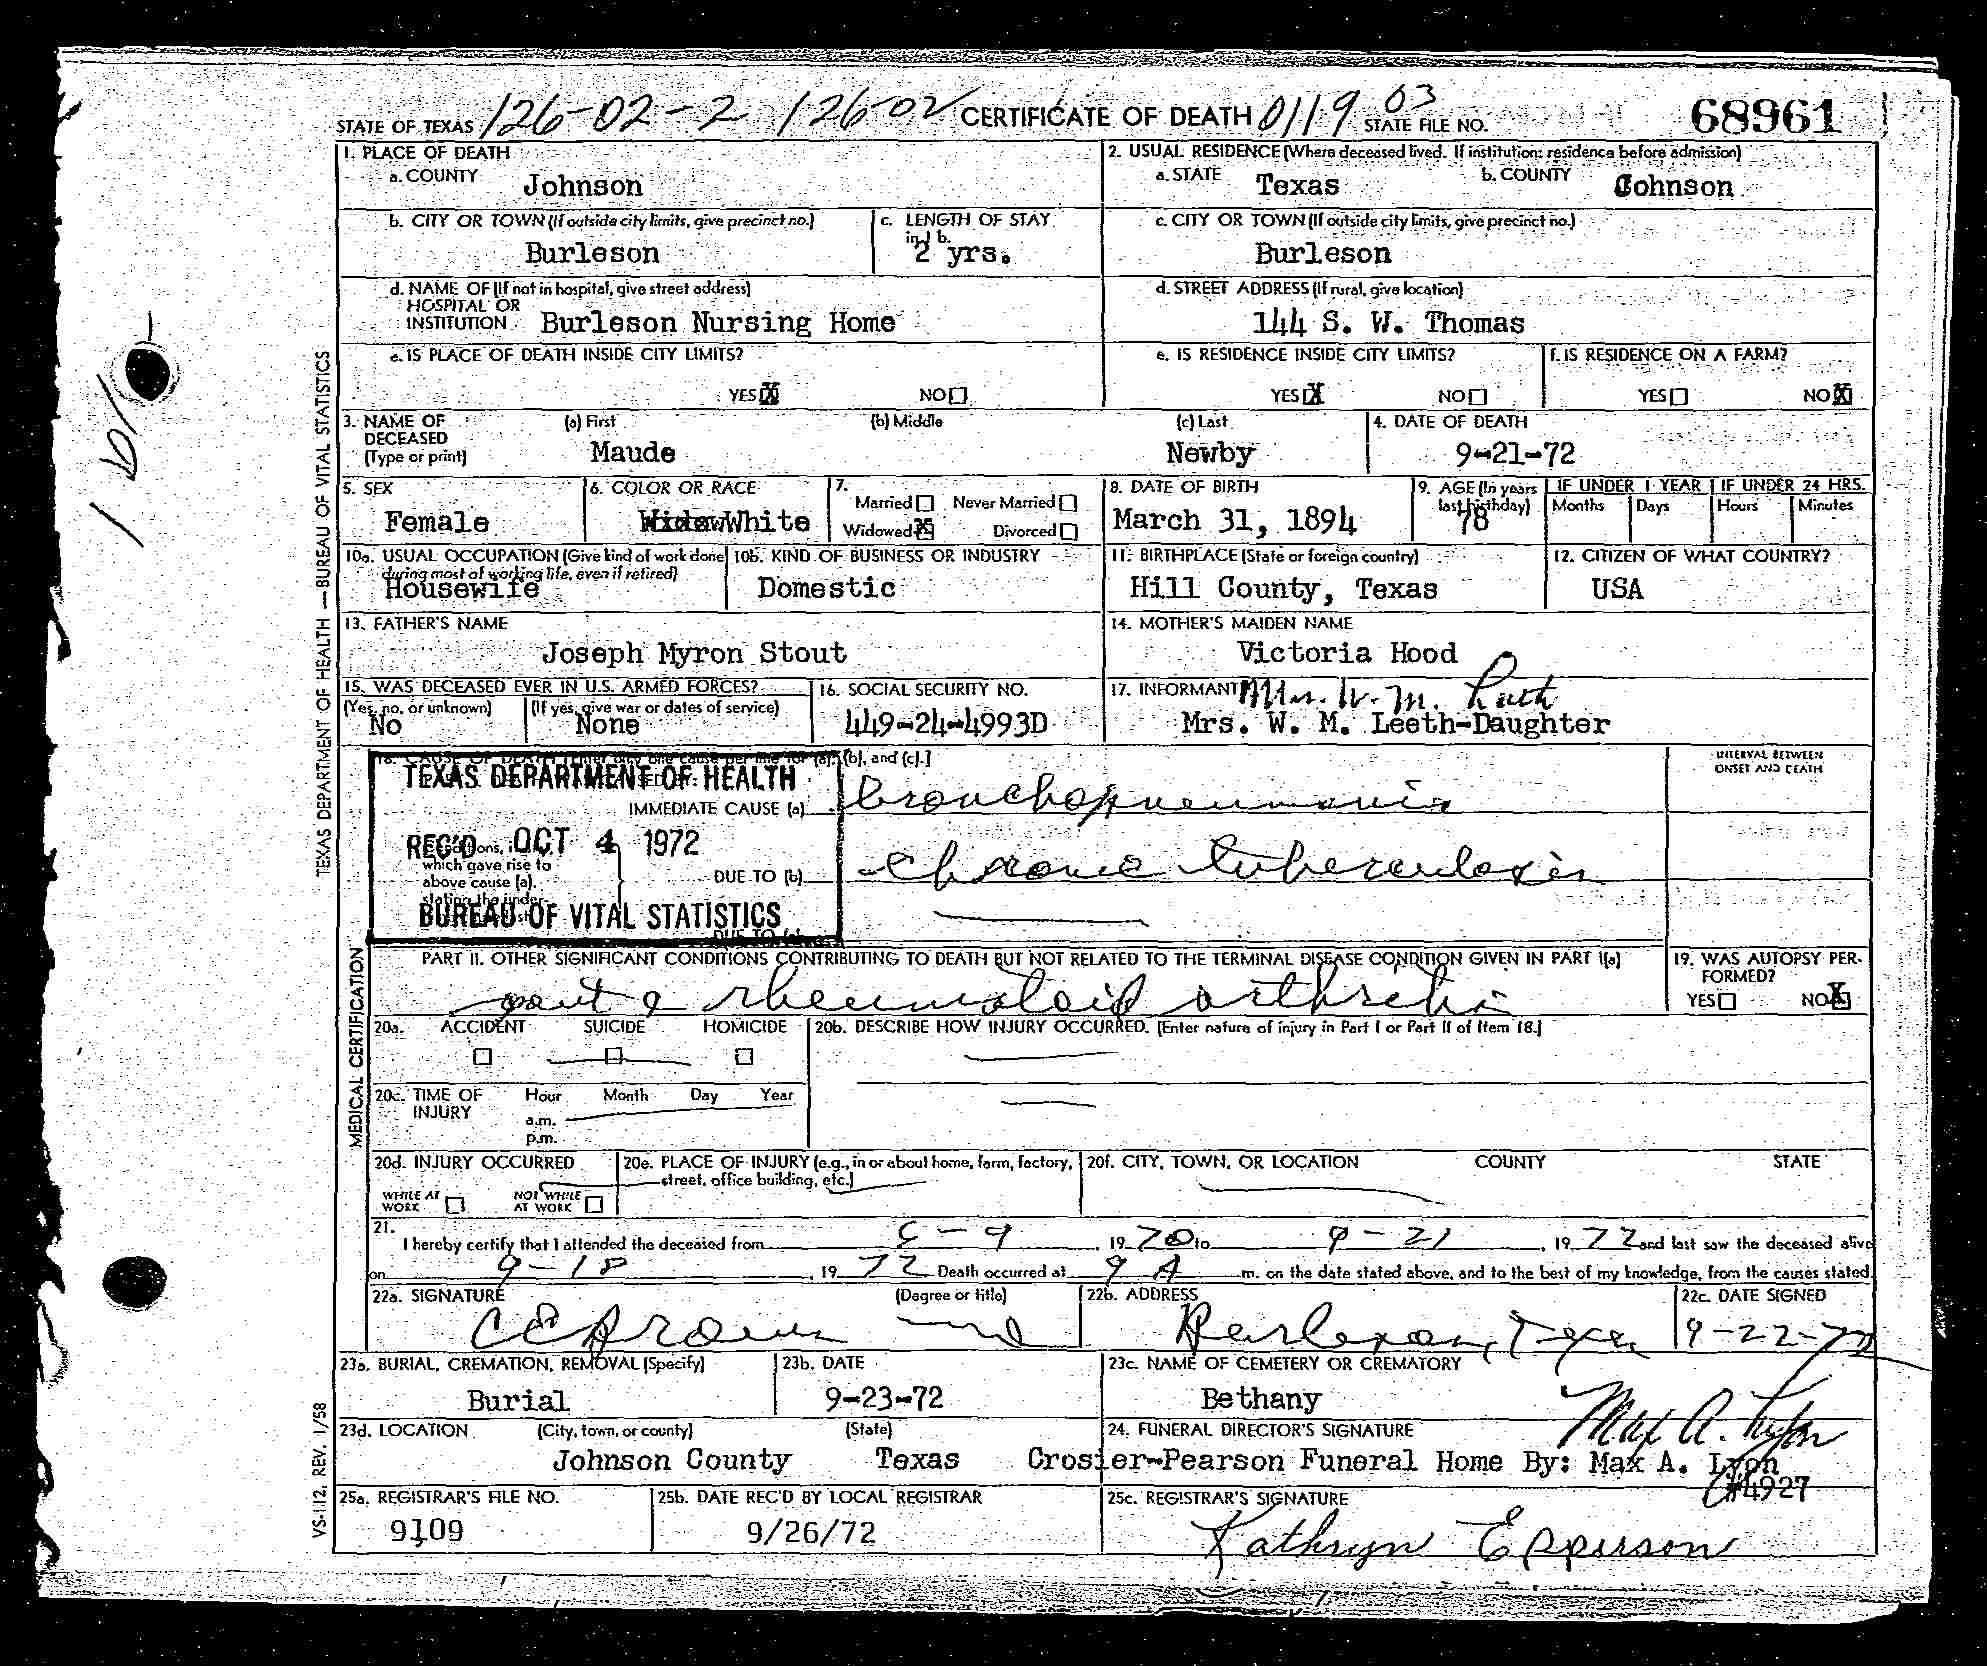 STATE OF TEXAS 126-02-2 126-02 CERTIFICATE OF DEATH 0119 03 STATE FILE NO. 68961
1. PLACE OF DEATH
a. COUNTY Johnson
2. USUAL RESIDENCE (Where deceased lived. If institution: residence before admission)
a. STATE Texas b. COUNTY Johnson
b. CITY OR TOWN (If outside city limits, give precinct no.) Burleson
c. LENGTH OF STAY in 1 b. 2 yrs.
c. CITY OR TOWN (If outside city limits, give precinct no.) Burleson
d. NAME OF (If not in hospital, give street address)
HOSPITAL OR
INSTITUTION Burleson Nursing Home
d. STREET ADDRESS (If rural, give location)
144 S. W. Thomas
e. IS PLACE OF DEATH INSIDE CITY LIMITS?
YES X NO
e. IS RESIDENCE INSIDE CITY LIMITS?
YES X NO
f. IS RESIDENCE ON A FARM?
YES NO X
3. NAME OF DECEASED (Type or print)
(a) First (b) Middle (c) Last
Maude Newby
4. DATE OF DEATH
9-21-72
5. SEX
Female
6. COLOR OR RACE
White
7.
Married Never Married
Widowed X Divorced
8. DATE OF BIRTH
March 31, 1894
9. AGE (In years last birthday)
78
IF UNDER 1 YEAR
Months Days
IF UNDER 24 HRS.
Hours Minutes
10a. USUAL OCCUPATION (Give kind of work done during most of working life, even if retired)
Housewife
10b. KIND OF BUSINESS OR INDUSTRY
Domestic
11. BIRTHPLACE (State or foreign country)
Hill County, Texas
12. CITIZEN OF WHAT COUNTRY?
USA
13. FATHER'S NAME
Joseph Myron Stout
14. MOTHER'S MAIDEN NAME
Victoria Hood
15. WAS DECEASED EVER IN U.S. ARMED FORCES?
(Yes, no, or unknown) (If yes, give war or dates of service)
No None
16. SOCIAL SECURITY NO.
449-24-4993D
17. INFORMANT Mrs. W. M. Leeth
Mrs. W. M. Leeth-Daughter
18. CAUSE OF DEATH [Enter only one cause per line for (a), (b), and (c).]
INTERVAL BETWEEN
ONSET AND DEATH
TEXAS DEPARTMENT OF HEALTH
IMMEDIATE CAUSE (a) bronchopneumonia
REC'D OCT 4 1972
which gave rise to
above cause (a),
stating the under-
DUE TO (b) chronic tuberculosis
BUREAU OF VITAL STATISTICS
PART II. OTHER SIGNIFICANT CONDITIONS CONTRIBUTING TO DEATH BUT NOT RELATED TO THE TERMINAL DISEASE CONDITION GIVEN IN PART I(a)
gout & rheumatoid arthritis
19. WAS AUTOPSY PERFORMED?
YES NO X
20a. ACCIDENT SUICIDE HOMICIDE
20b. DESCRIBE HOW INJURY OCCURRED. (Enter nature of injury in Part I or Part II of Item 18.)
20c. TIME OF INJURY
Hour Month Day Year
a.m.
p.m.
20d. INJURY OCCURRED
WHILE AT WORK NOT WHILE AT WORK
20e. PLACE OF INJURY (e.g., in or about home, farm, factory, street, office building, etc.)
20f. CITY, TOWN, OR LOCATION COUNTY STATE
21.
I hereby certify that I attended the deceased from 6-9, 1970 to 9-21, 1972 and last saw the deceased alive
on 9-18, 1972 Death occurred at 9 A m. on the date stated above, and to the best of my knowledge, from the causes stated.
22a. SIGNATURE (Degree or title)
md
22b. ADDRESS
Burleson, Texas
22c. DATE SIGNED
9-22-72
23a. BURIAL, CREMATION, REMOVAL (Specify)
Burial
23b. DATE
9-23-72
23c. NAME OF CEMETERY OR CREMATORY
Bethany
23d. LOCATION (City, town, or county) (State)
Johnson County Texas
24. FUNERAL DIRECTOR'S SIGNATURE Max A. Lyon
Crosier-Pearson Funeral Home By: Max A. Lyon
#4927
25a. REGISTRAR'S FILE NO.
9109
25b. DATE REC'D BY LOCAL REGISTRAR
9/26/72
25c. REGISTRAR'S SIGNATURE
Kathryn Epperson
TEXAS DEPARTMENT OF HEALTH — BUREAU OF VITAL STATISTICS
MEDICAL CERTIFICATION
VS-112, REV. 1/58